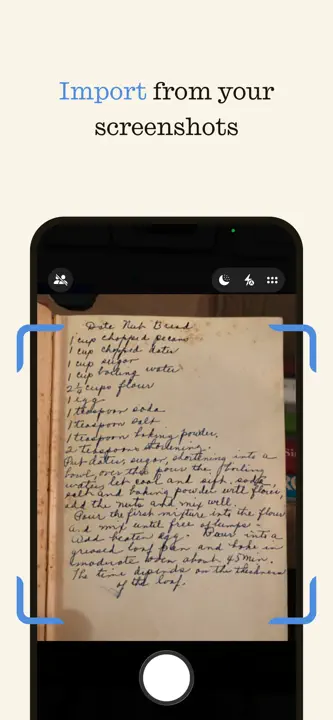 Import from your
screenshots
Date Nut Bread
1 cup chopped pecans
1 cup chopped dates
1 cup sugar
1 cup boiling water
2½ cups flour
1 egg
1 teaspoon soda
1 teaspoon salt
1 teaspoon baking powder,
2 teaspoons shortening.
Put dates, sugar, shortening into a
bowl, over this pour the boiling
water, let cool and sift, soda,
salt and baking powder with flour,
add the nuts and mix well.
Pour the first mixture into the flour
and mix until free of lumps -
Add beaten egg. Pour into a
greased loaf pan and bake in
moderate oven about 45 min.
The time depends on the thickness
of the loaf.